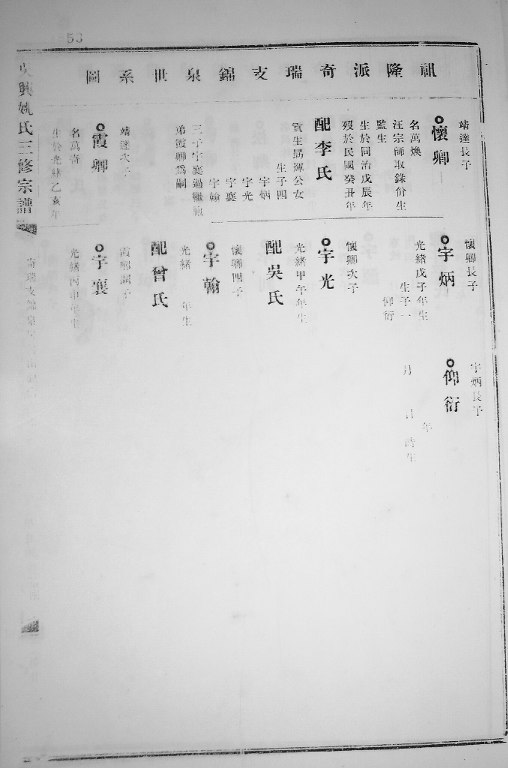 53
訊隆派奇瑞支錦泉世系圖
靖達長子
懷卿
名萬煥
汪宗師取錄佾生
監生
生於同治戊辰年
歿於民國癸丑年
配李氏
貢生
公女
生子四
宇炳
宇光
宇襄
宇翰
三子宇襄
弟霞卿爲嗣
靖達次子
霞卿
名萬
生於光緒乙亥年
懷卿長子
宇炳
光緒戊子年生
生子一
仰衍
懷卿次子
宇光
光緒甲午年生
配吳氏
懷卿四子
宇翰
光緒 年生
配曾氏
霞卿嗣子
宇襄
光緒丙申年生
宇炳長子
仰衍
年
月 日 時生
吳興姚氏三修宗譜